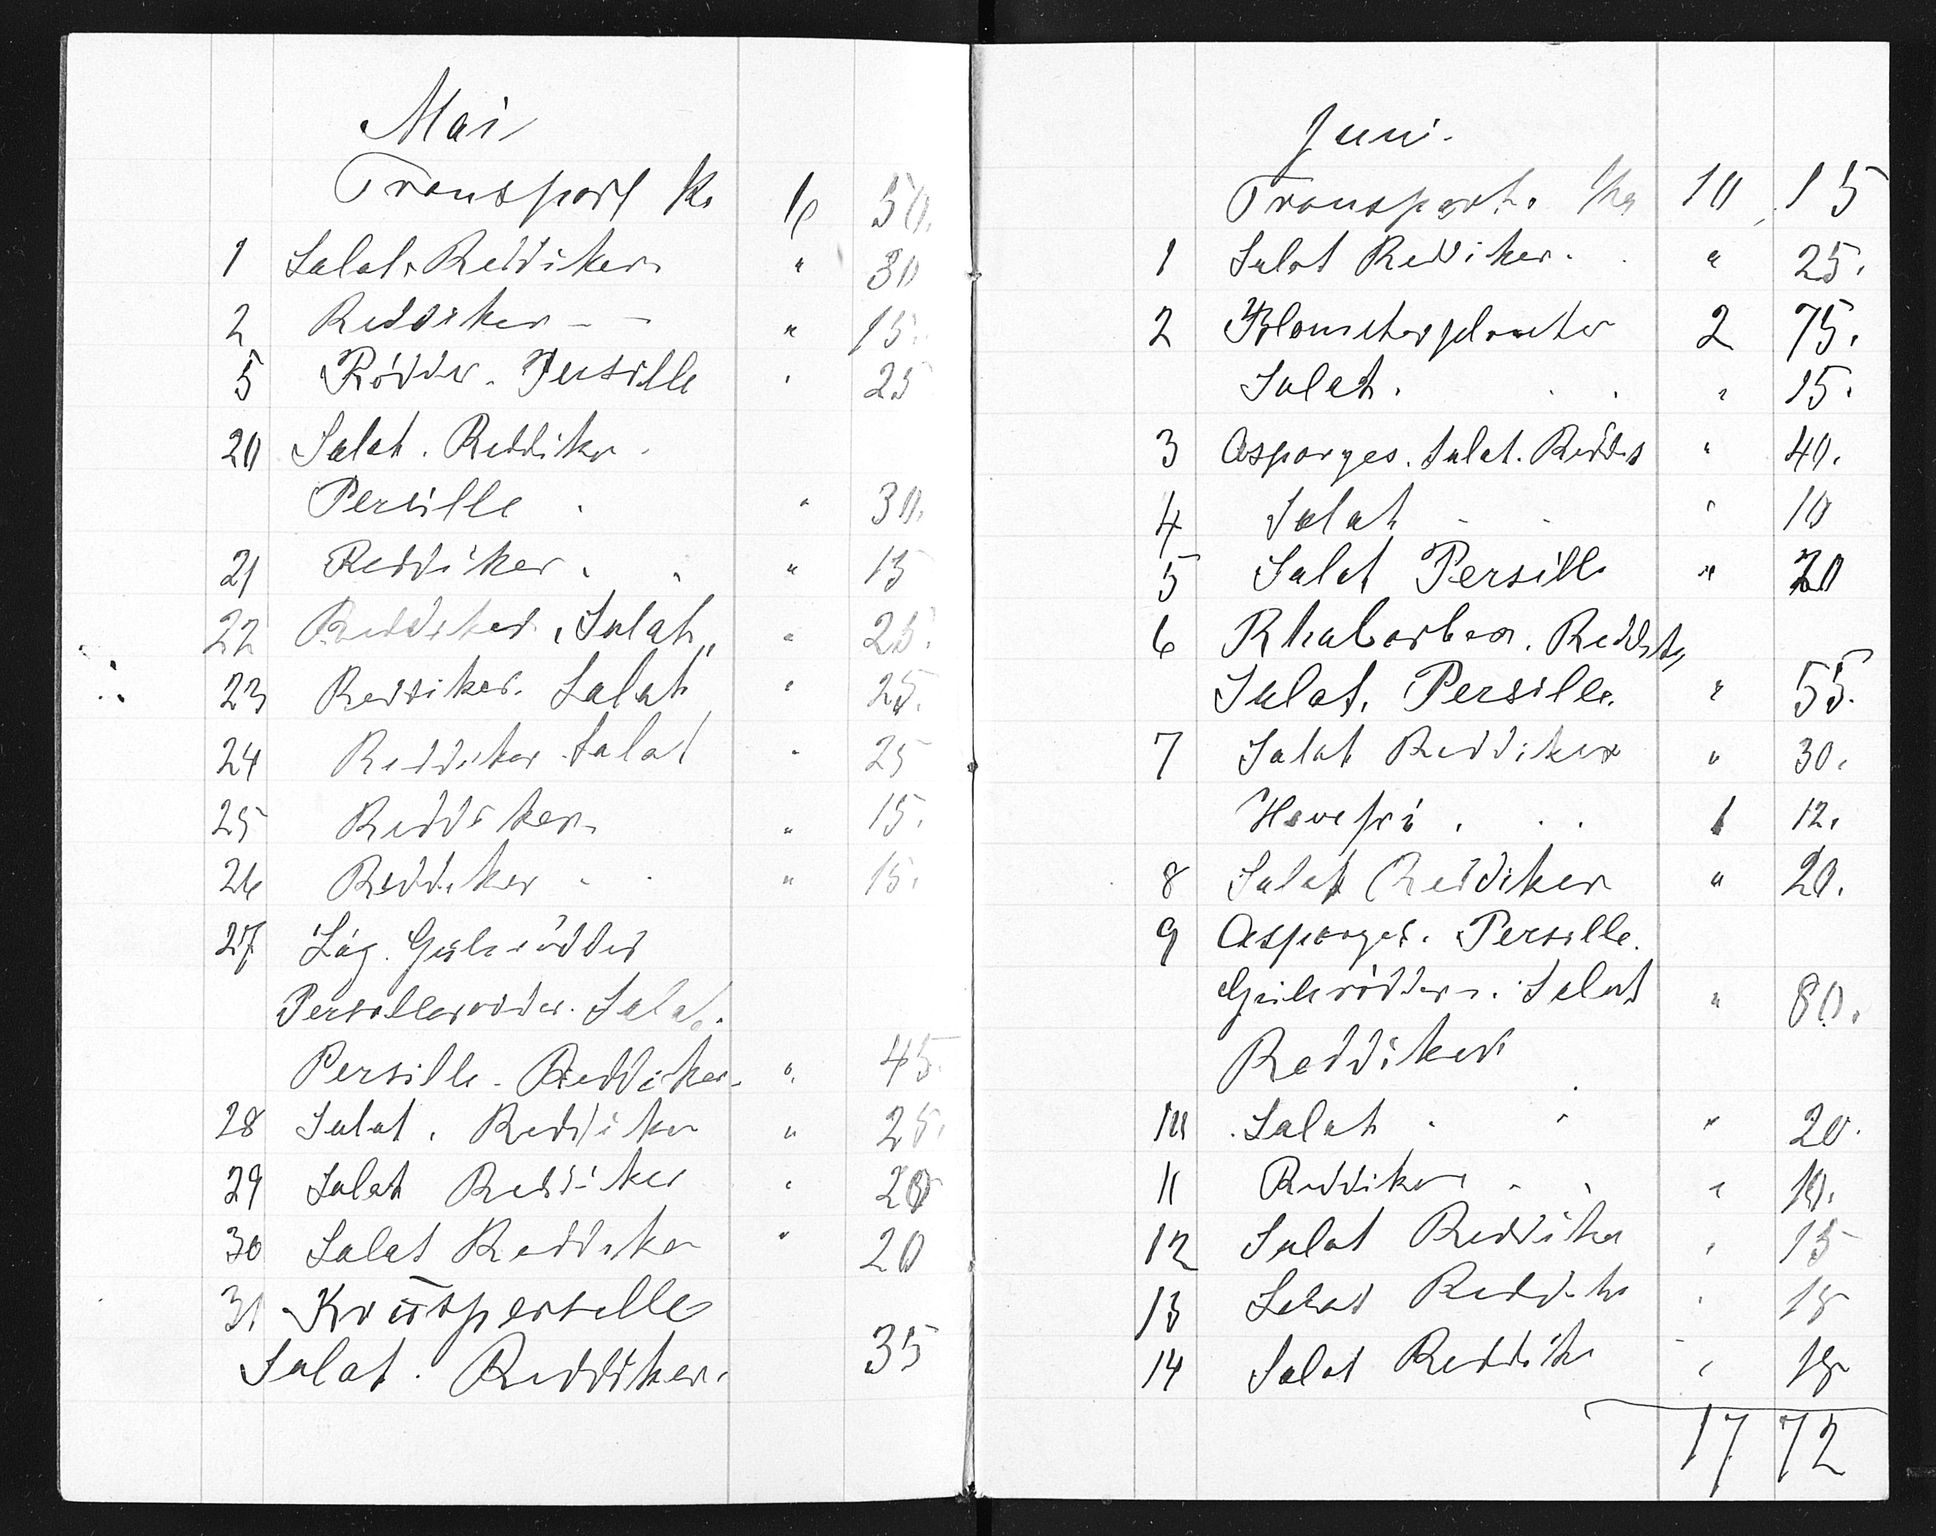 Mai
Transport Kr 6 50.
1 Salat. Reddiker. " 30
2 Reddiker - - " 15.
5 Rödder. Persille " 25
20 Salat. Reddiker.
Persille . " 30.
21 Reddiker. . " 15
22 Reddiker, Salat, " 25.
23 Reddiker. Salat " 25.
24 Reddiker Salat " 25
25 Reddiker. " 15.
26 Reddiker . . " 15.
27 Lög. Gulerödder
Persillerodder. Salat.
Persille. Reddiker. " 45.
28 Salat. Reddiker " 25.
29 Salat Reddiker " 20
30 Salat Reddiker " 20
31 Kruspersille
Salat. Reddiker. 35
Juni.
Transport. Kr 10 15
1 Salat Reddiker. . " 25.
2 Blomsterplanter 2 75.
Salat. . . " 15.
3 Asparges. Salat. Reddis " 40.
4 Salat . . " 10
5 Salat Persille " 20
6 Rhabarber. Reddiker
Salat. Persille. " 55.
7 Salat Reddiker " 30.
Havefrö . . . 1 12.
8 Salat Reddiker " 20.
9 Asparges. Persille.
Gulerödder. Salat " 80.
Reddiker
10 Salat . . " 20.
11 Reddiker . . " 10.
12 Salat Reddiker " 15
13 Salat Reddiker " 15
14 Salat Reddiker " 15
17 72